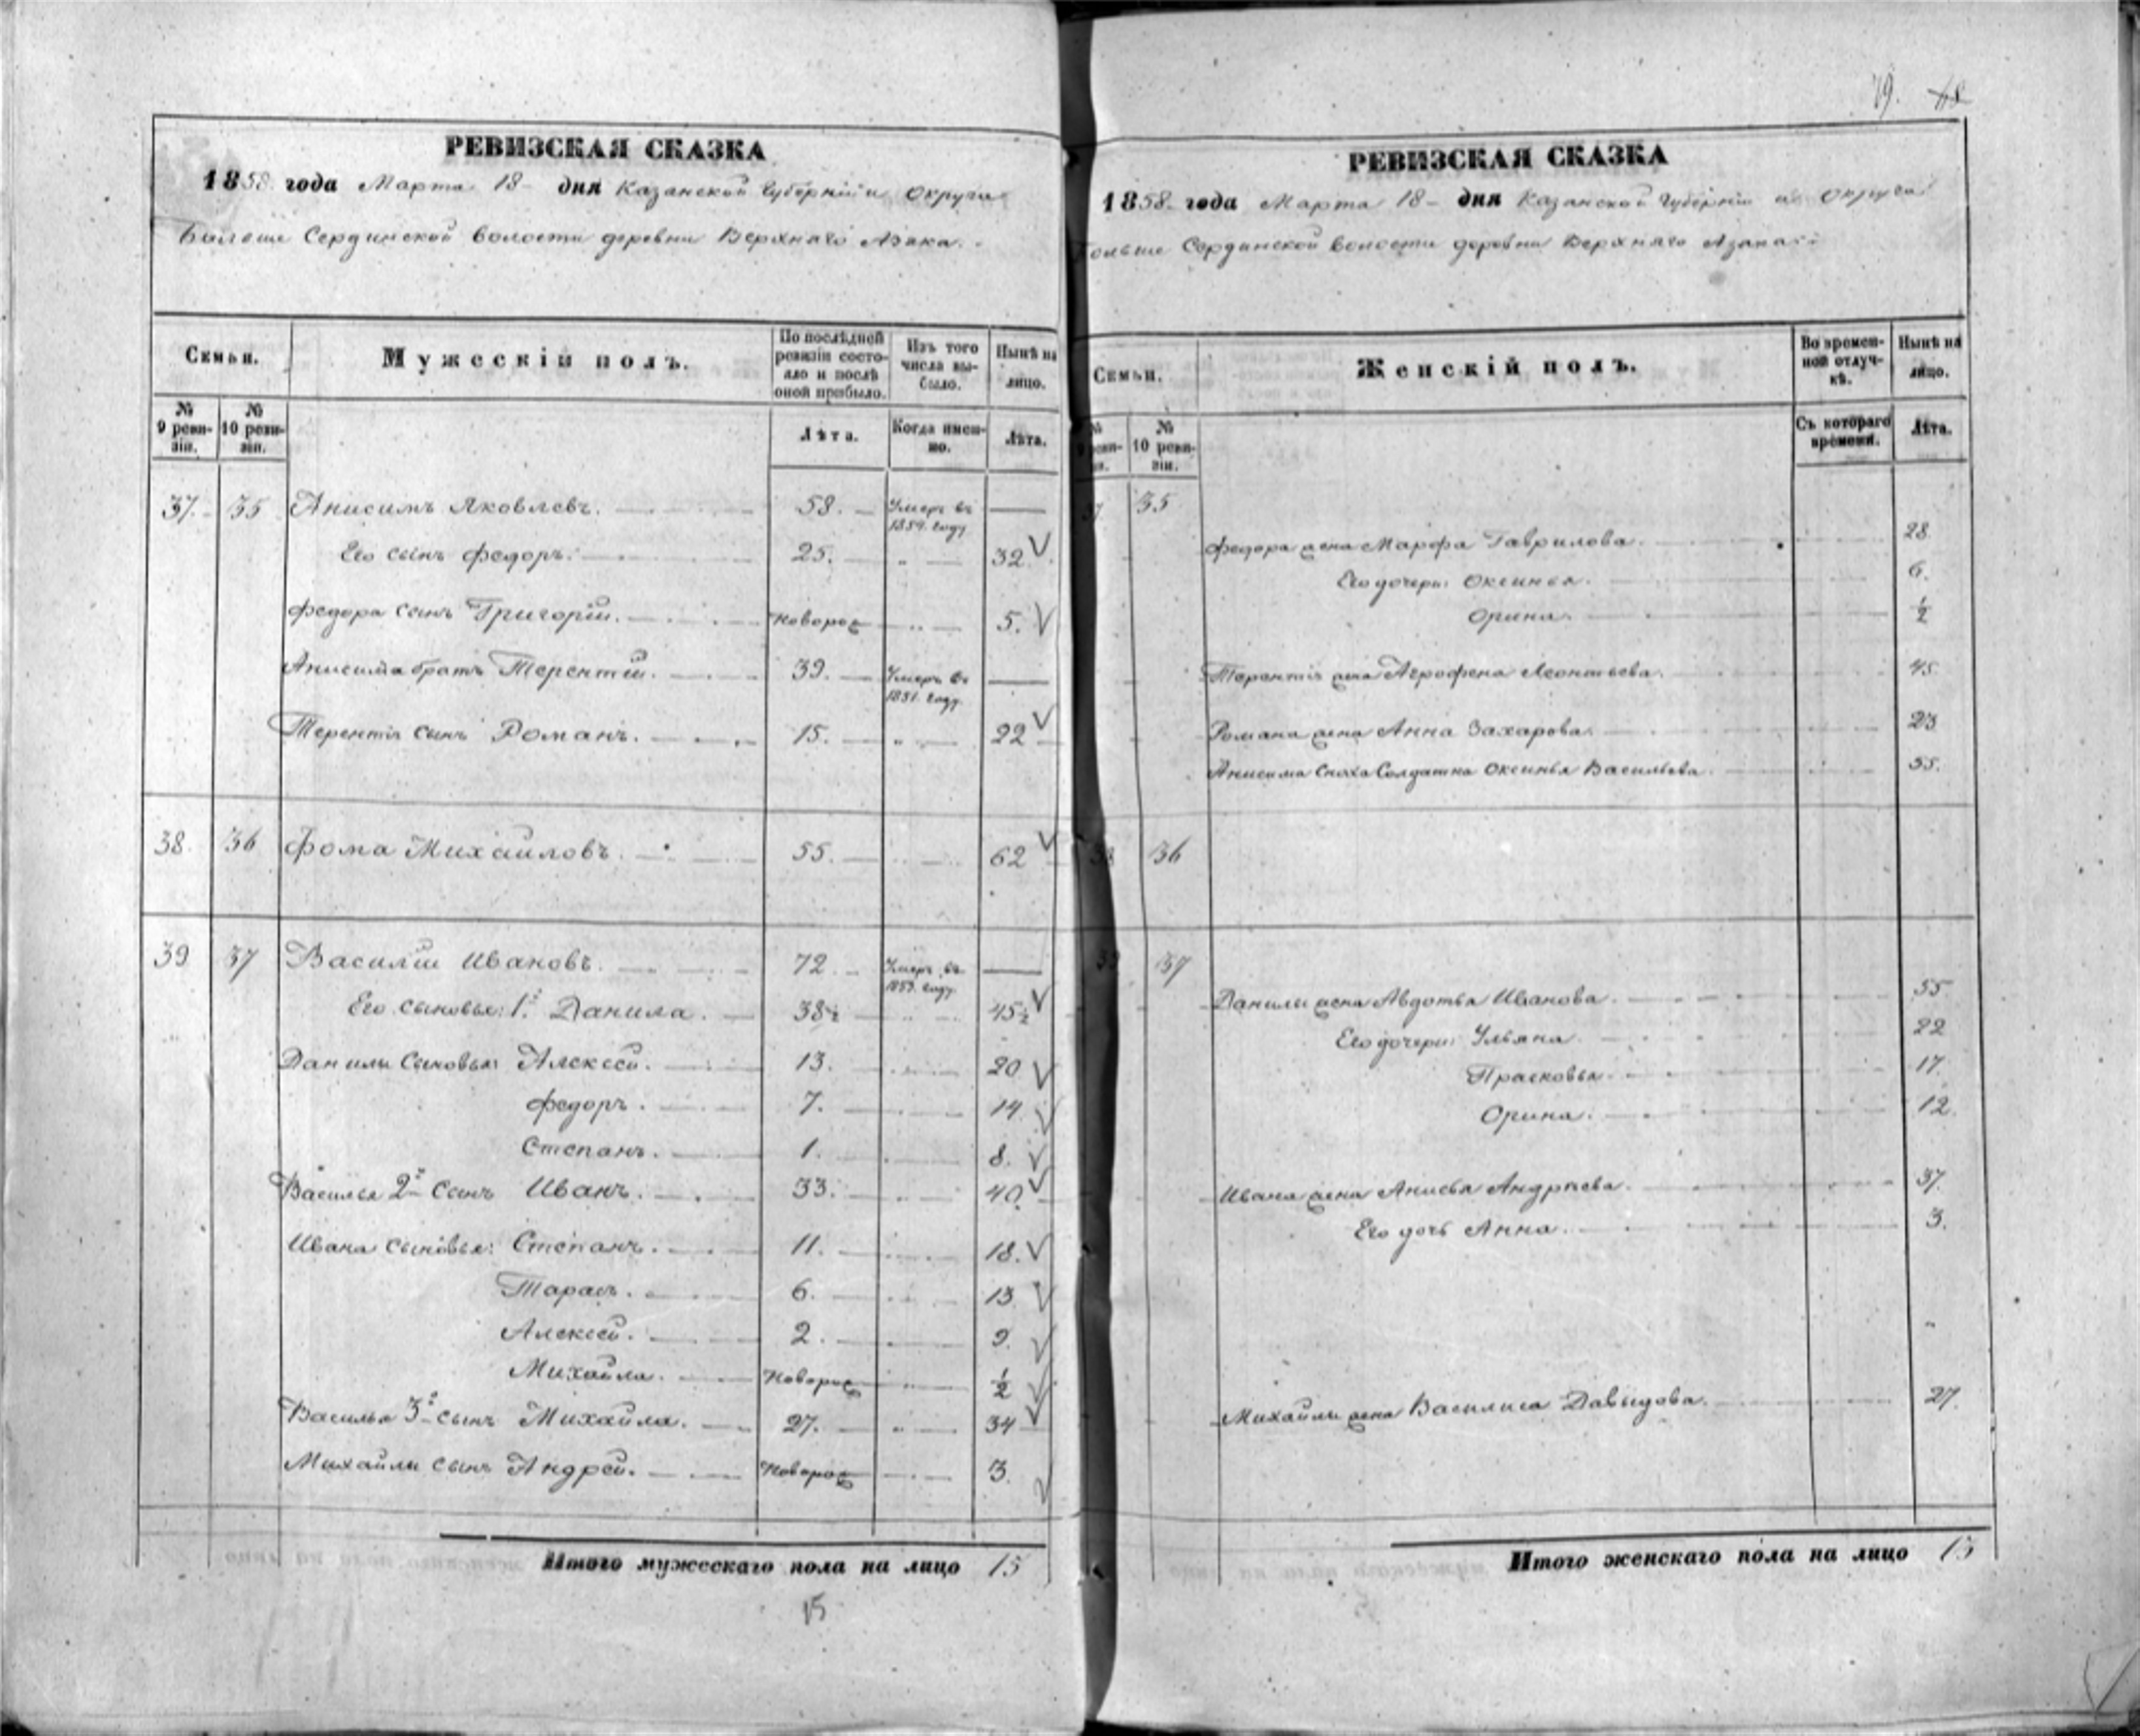 79. 48
РЕВИЗСКАЯ СКАЗКА
1858 года Марта 18 - дня Казанской Губерніи и Округа
Больше Сердинской волости деревни Верхняго Азяка.
Семьи.
Мужескій полъ.
По послѣдней ревизіи состояло и послѣ оной прибыло.
Изъ того числа выбыло.
Нынѣ на лицо.
№ 9 ревизіи.
№ 10 ревизіи.
Лѣта.
Когда именно.
Лѣта.
37. 35 Анисимъ Яковлевъ. 58. Умеръ въ 1854. году
Его сынъ Федоръ. 25. 32
Федора сынъ Григорій. новорож 5.
Анисима братъ Терентій. 39. Умеръ въ 1851. году
Терентія сынъ Романъ. 15. 22
38. 36 Фома Михайловъ. 55. 62
39 37 Василій Ивановъ. 72 Умеръ въ 1853. году
Его сыновья: 1й Данила. 38½ 45½
Данилы сыновья: Алексей. 13. 20
Федоръ. 7. 14
Степанъ. 1. 8.
Василья 2й сынъ Иванъ. 33. 40.
Ивана сыновья: Степанъ. 11. 18.
Тарасъ. 6. 13
Алексей. 2. 9.
Михайла. новорож ½
Василья 3й сынъ Михайла. 27. 34
Михайлы сынъ Андрей. новорож 3.
Итого мужескаго пола на лицо 15
15
РЕВИЗСКАЯ СКАЗКА
1858. года Марта 18 - дня Казанской Губерніи и Округа
Больше Сердинской волости деревни Верхняго Азяка
Семьи.
Женскій полъ.
Во временной отлучкѣ.
Нынѣ на лицо.
№ 9 ревизіи.
№ 10 ревизіи.
Съ котораго времени.
Лѣта.
37 35
Федора жена Марфа Гаврилова. 28
Его дочери: Оксинья. 6.
Орина. ½
Терентія жена Агрофена Леонтьева. 45.
Романа жена Анна Захарова. 23
Анисима сноха Солдатка Оксинья Васильева. 55.
38 36
39 37
Данилы жена Авдотья Иванова. 55
Его дочери: Ульяна. 22
Прасковья. 17.
Орина. 12.
Ивана жена Анисья Андреева. 37.
Его дочь Анна. 3.
Михайлы жена Василиса Давыдова. 27.
Итого женскаго пола на лицо 13